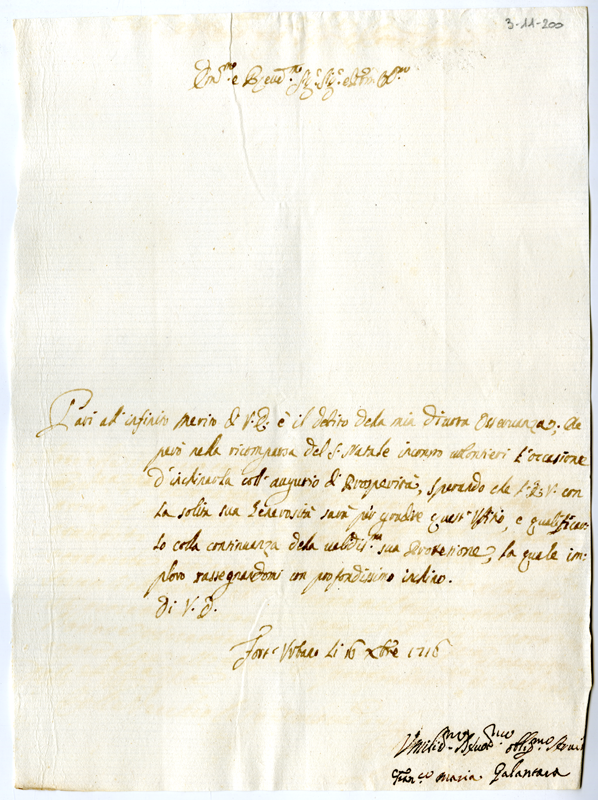 3-11-200
Em.mo e Reved.mo Sig.r Sig.r
Pari all'infinito merito di V. E. è il debito dela mia divota Osservanza, che
però nella ricorrenza del S. Natale incontro volontieri l'occasione
d'inchinarla coll'augurio di Prosperità, sperando che l'E. V. con
la solita sua Generosità sarà per gradire quest'Uffitio, e qualificar-
lo colla continuanza dela validis.ma sua Protezione, la quale im=
ploro rassegnandomi con profondissimo inchino.
Di V. E.
Forte Urbano li 16 Xbre 1716
Umilis.mo Devot.mo Obblig.mo
Fran.co Maria Galantara